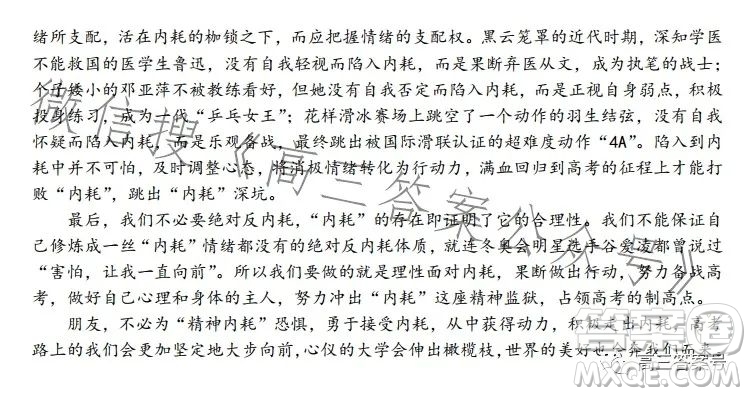 绪所支配，活在内耗的枷锁之下，而应把握情绪的支配权。黑云笼罩的近代时期，深知学医
不能救国的医学生鲁迅，没有自我轻视而陷入内耗，而是果断弃医从文，成为执笔的战士；
个子矮小的邓亚萍不被教练看好，但她没有自我否定而陷入内耗，而是正视自身弱点，积极
投身练习，成为一代“乒乓女王”；花样滑冰赛场上跳空了一个动作的羽生结弦，没有自我
怀疑而陷入内耗，而是乐观备战，最终跳出被国际滑联认证的超难度动作“4A”。陷入到内
耗中并不可怕，及时调整心态，将消极情绪转化为行动力，满血回归到高考的征程上才能打
败“内耗”，跳出“内耗”深坑。
最后，我们不必要绝对反内耗，“内耗”的存在即证明了它的合理性。我们不能保证自
己修炼成一丝“内耗”情绪都没有的绝对反内耗体质，就连冬奥会明星选手谷爱凌都曾说过
“害怕，让我一直向前”。所以我们要做的就是理性面对内耗，果断做出行动，努力备战高
考，做好自己心理和身体的主人，努力冲出“内耗”这座精神监狱，占领高考的制高点。
朋友，不必为“精神内耗”恐惧，勇于接受内耗，从中获得动力，积极走出内耗，高考
路上的我们会更加坚定地大步向前，心仪的大学会伸出橄榄枝，世界的美好也会奔我们而来。
微信搜《高三答案公众号》
高三答案号
作业精灵
MXQE.COM